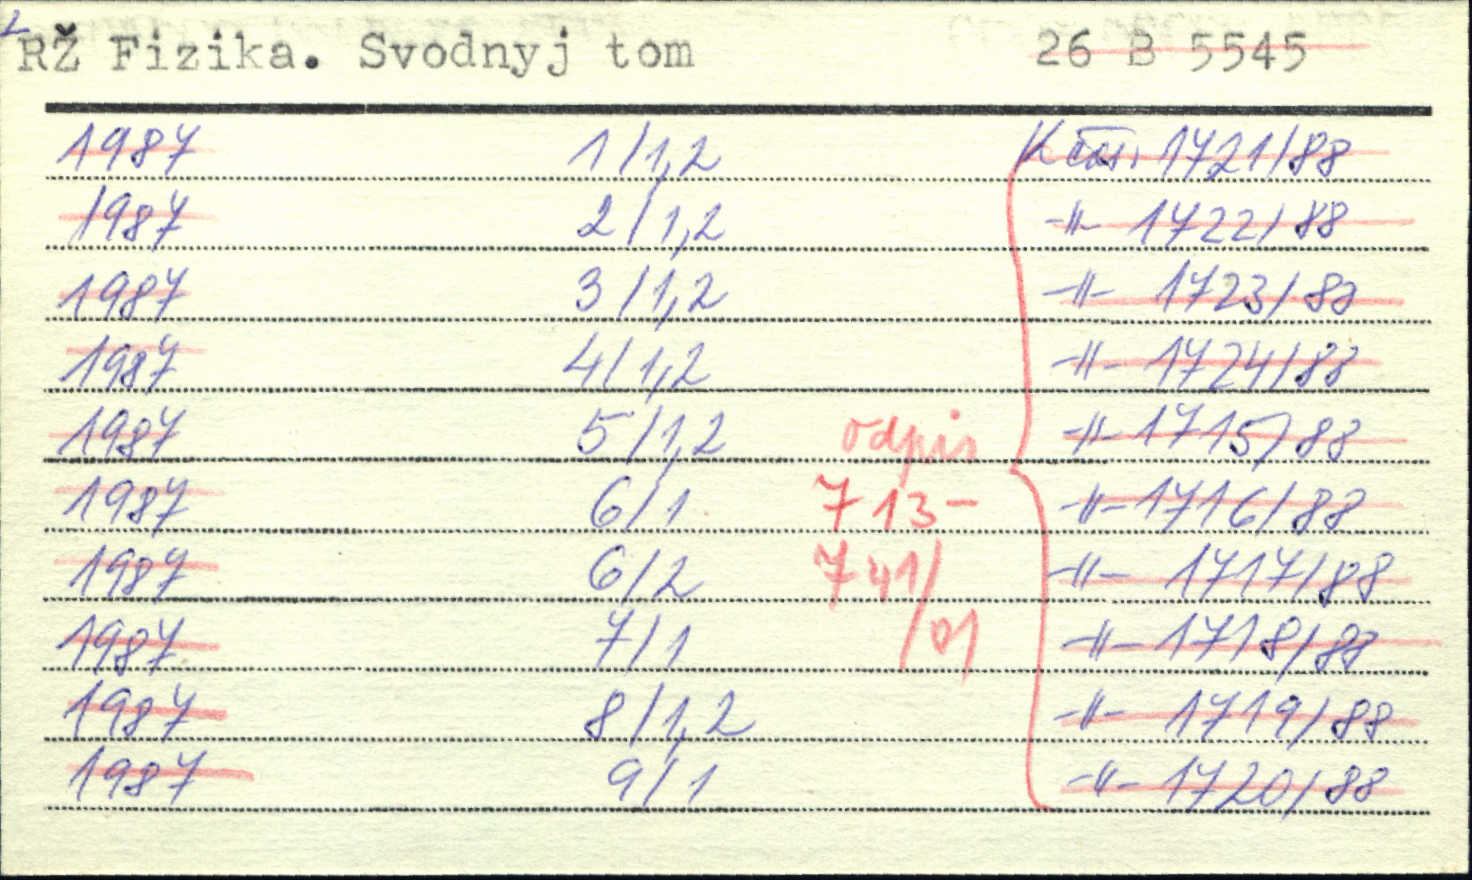 2
RŽ Fizika. Svodnyj tom 26 B 5545
1987 1/1,2 1721/88
1987 2/1,2 -||- 1722/88
1987 3/1,2 -||- 1723/88
1987 4/1,2 -||- 1724/88
1987 5/1,2 odpis -||- 1715/88
1987 6/1 713- -||- 1716/88
1987 6/2 741/ -||- 1717/88
1987 7/1 /01 -||- 1718/88
1987 8/1,2 -||- 1719/88
1987 9/1 -||- 1720/88